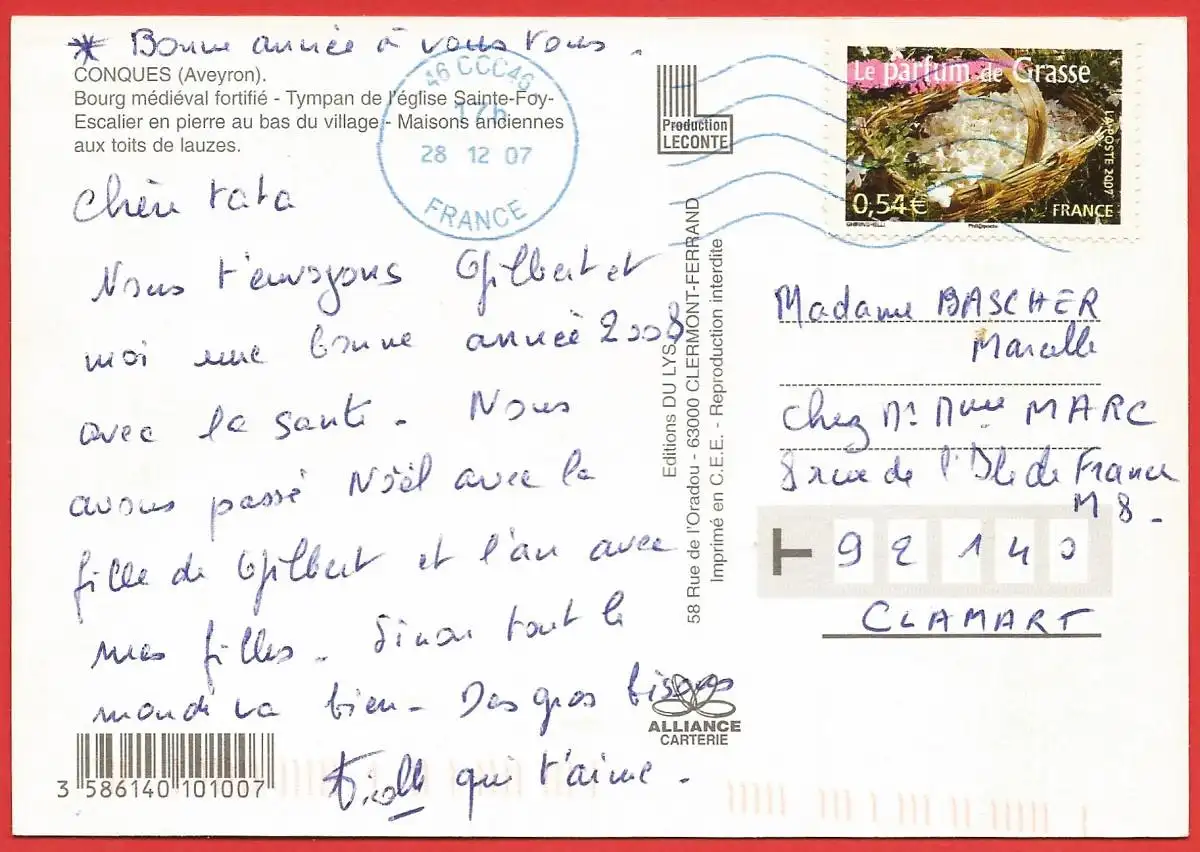 * Bonne année à vous tous.
CONQUES (Aveyron).
Bourg médiéval fortifié - Tympan de l'église Sainte-Foy-
Escalier en pierre au bas du village - Maisons anciennes
aux toits de lauzes.
Chère tata
Nous t'envoyons Gilbert et
moi une bonne année 2008
avec la santé. Nous
avons passé Nöël avec la
fille de Gilbert et l'an avec
mes filles. Sinon tout le
monde va bien. Des gros bisous
qui t'aime.
3 586140 101007
46 CCC46
176
28 12 07
FRANCE
Production
LECONTE
Editions DU LYS
58 Rue de l'Oradou - 63000 CLERMONT-FERRAND
Imprimé en C.E.E. - Reproduction interdite
ALLIANCE
CARTERIE
Le parfum de Grasse
LA POSTE 2007
0,54€
FRANCE
Madame BASCHER
Marcelle
Chez Mr Mme MARC
8 rue de l'Ile de France
M 8.
T 92140
CLAMART